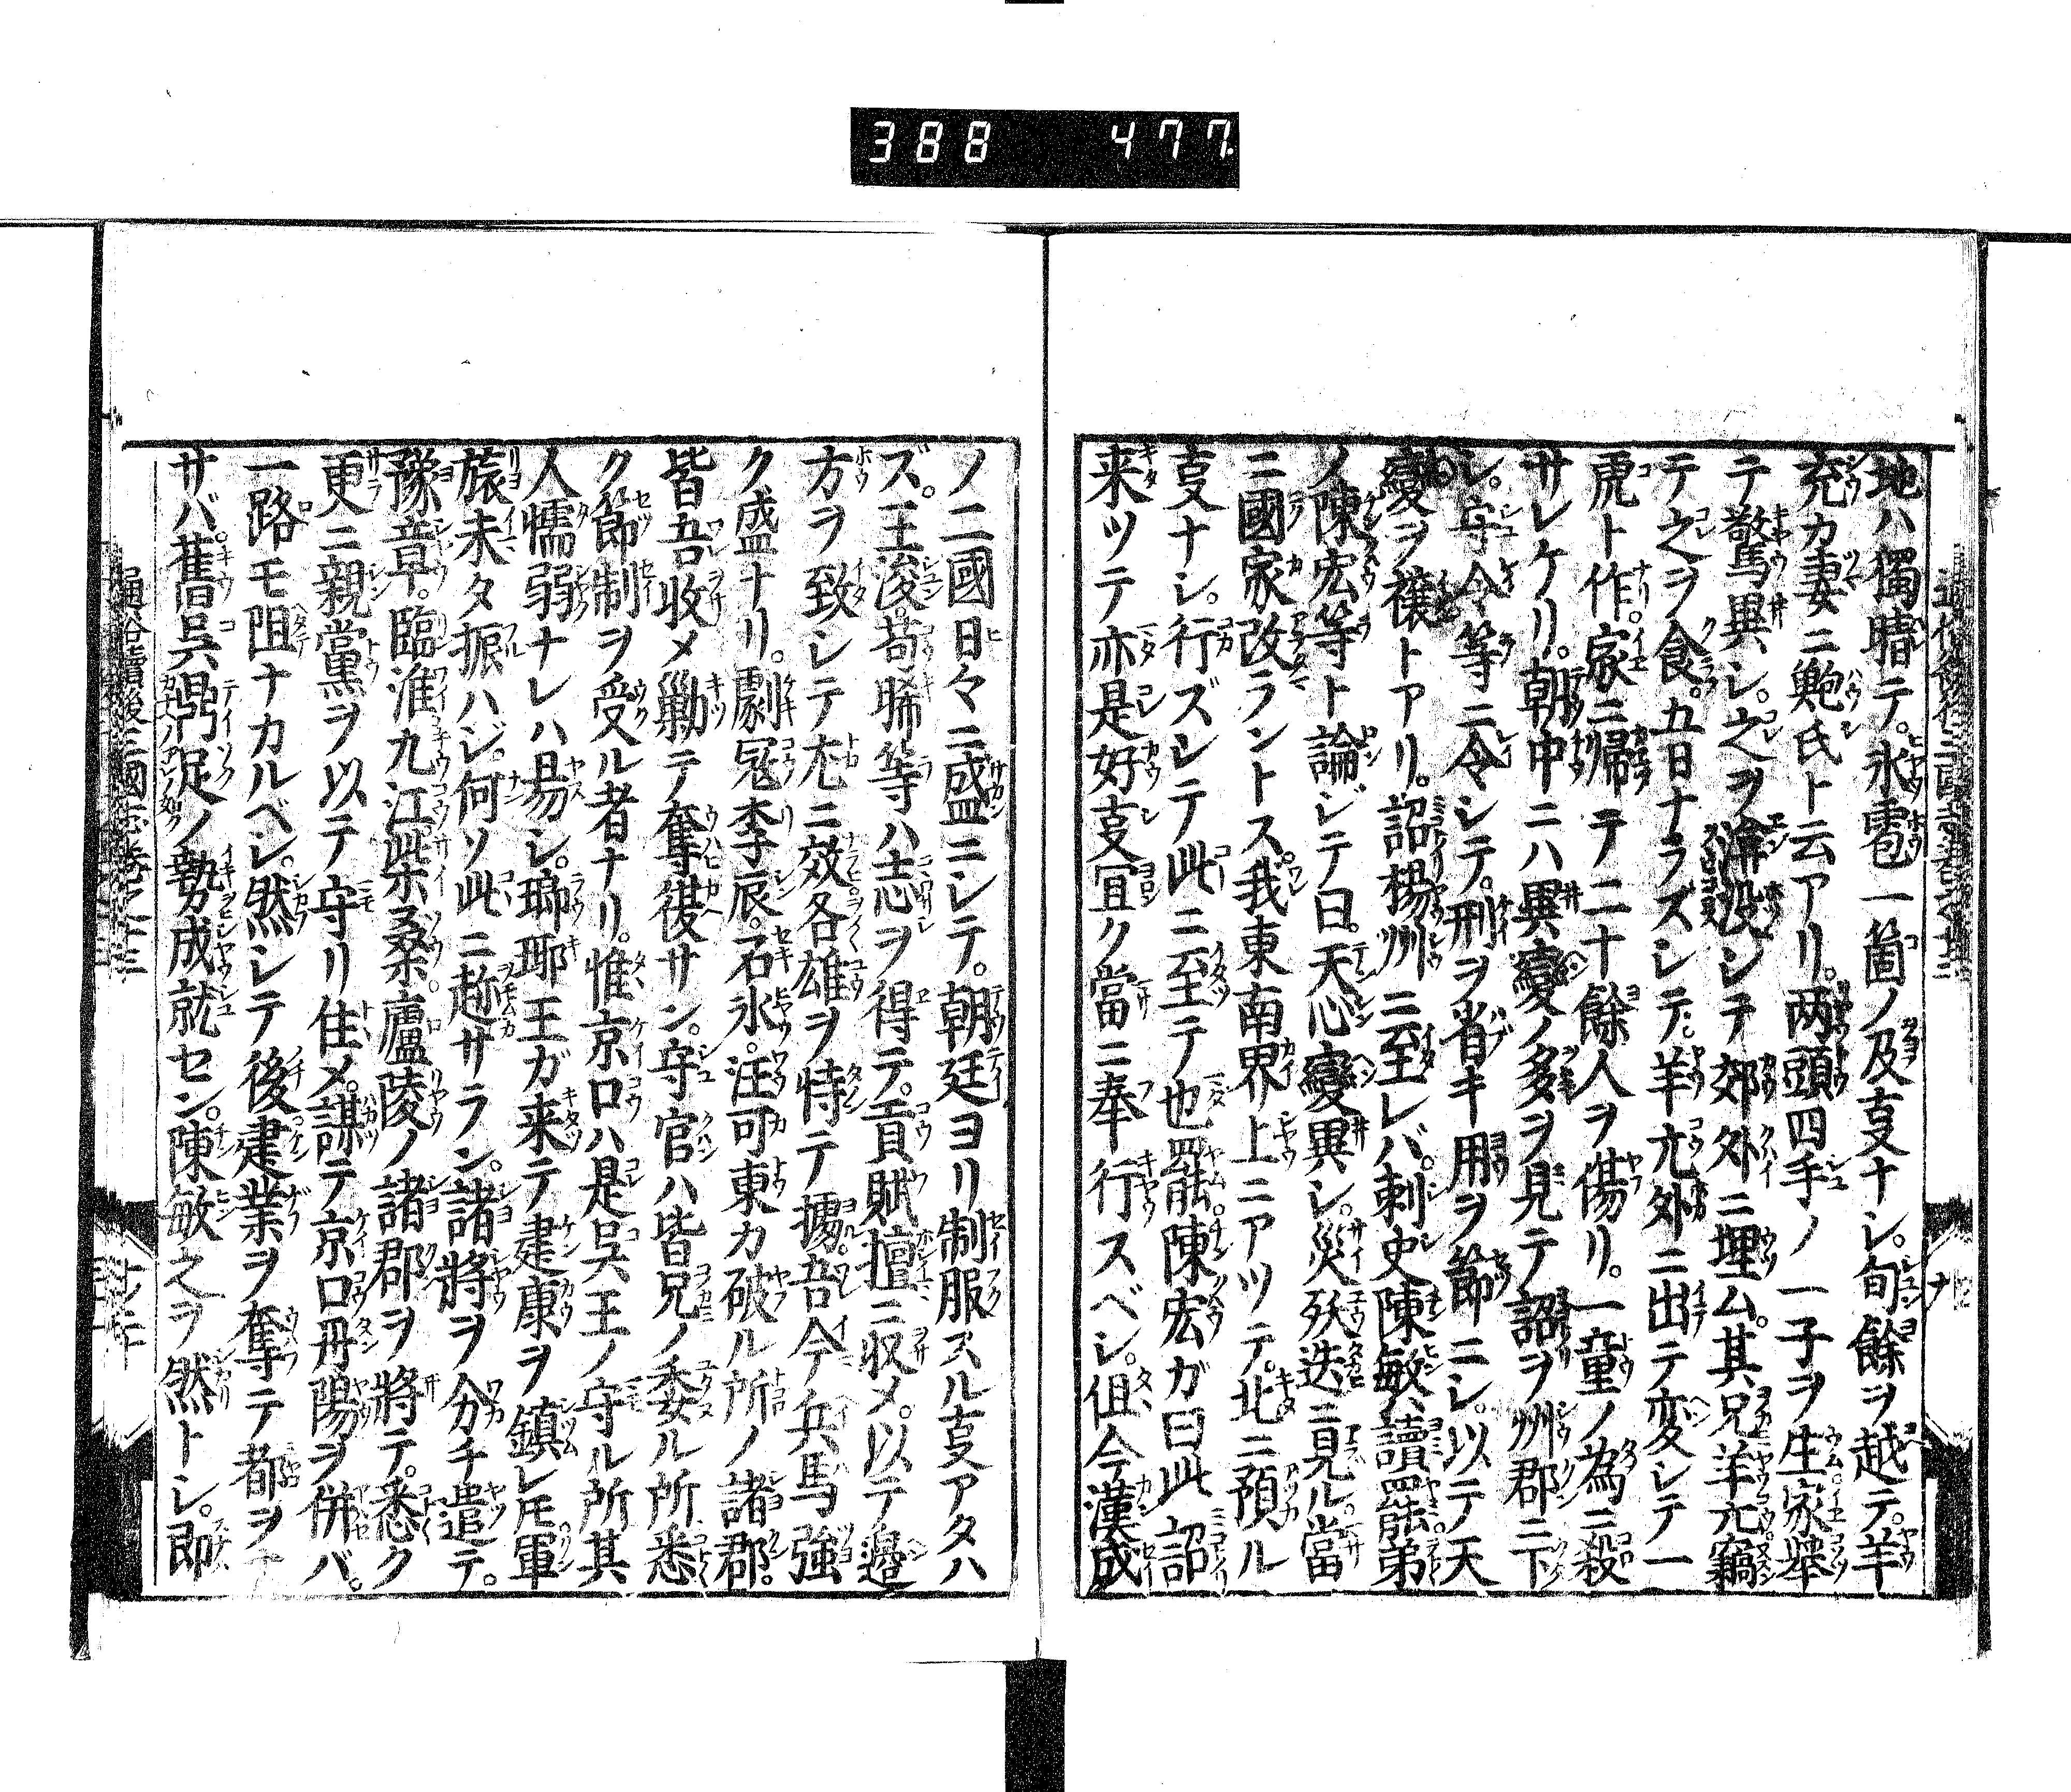 388 477
地ハ獨晴テ。氷雹一箇ノ及叓ナシ。旬餘ヲ越テ。羊
充カ妻ニ鮑氏ト云アリ。两頭四手ノ一子ヲ生。家舉
テ驚異シ。之ヲ渰没シテ郊外ニ埋ム。其兄羊亢竊
テ之ヲ食。五日ナラズシテ。羊亢外ニ出テ変シテ一
虎ト作。家ニ歸テ二十餘人ヲ傷リ。一童ノ為ニ殺
サレケリ。朝中ニハ異變ノ多ヲ見テ詔ヲ州郡ニ下
シ。守令等ニ令シテ。刑ヲ省キ用ヲ節ニシ。以テ天
變ヲ禳トアリ。詔楊州ニ至レバ。刺史陳敏讀罷。弟
ノ陳宏等ト論ジテ曰。天心變異シ。災殀迭ニ見ル。當
ニ國家改ラントス。我東南界上ニアツテ。北ニ預ル
叓ナシ。行ズシテ此ニ至テ也罷。陳宏ガ曰此詔
来ツテ亦是好叓冝ク當ニ奉行スベシ。但今漢成
ノ二國日々ニ盛ニシテ。朝廷ヨリ制服スル叓アタハ
ズ。王浚。苟晞等ハ志ヲ得テ。貢賦擅ニ収メ。以テ邉
方ヲ致シテ尢ニ效各雄ヲ恃テ據。吾今兵馬強
ク盛ナリ。劇冦李辰。石氷。汪可東カ破ル所ノ諸郡。
皆吾收メ勦テ奪復サン。守官ハ皆兄ノ委ル所悉
ク節制ヲ受ル者ナリ。惟京口ハ是呉王ノ守ル所其
人懦弱ナレハ昜シ。瑯瑘王ガ来テ建康ヲ鎮レ𪜈軍
旅未タ振ハジ。何ソ此ニ趂サラン。諸將ヲ分チ遣テ。
豫章。臨淮九江柴桑。廬陵ノ諸郡ヲ將テ。悉ク
更ニ親黨ヲ以テ守リ隹メ。謀テ京口丹陽ヲ併バ。
一路モ阻ナカルベシ。然シテ後建業ヲ奪テ都ヲ
サバ。舊呉鼎足ノ勢成就セン。陳敏之ヲ然トシ。即
通俗續後三國志巻之十三